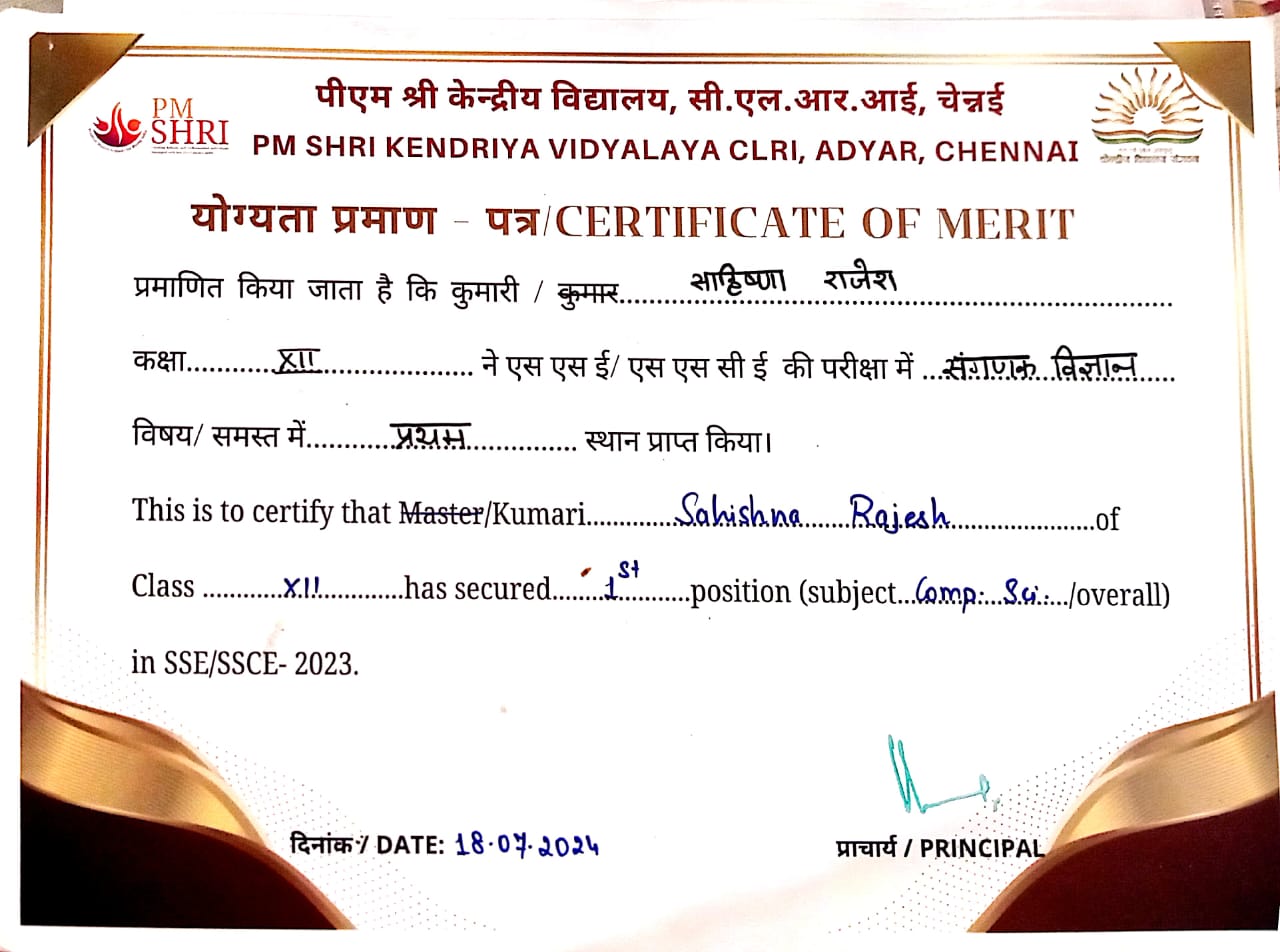 PM SHRI
पीएम श्री केन्द्रीय विद्यालय, सी.एल.आर.आई, चेन्नई
PM SHRI KENDRIYA VIDYALAYA CLRI, ADYAR, CHENNAI
केन्द्रीय विद्यालय संगठन
योग्यता प्रमाण - पत्र/CERTIFICATE OF MERIT
प्रमाणित किया जाता है कि कुमारी / कुमार....साहिष्णा राजेश....
कक्षा....XII.... ने एस एस ई/ एस एस सी ई की परीक्षा में ...संगणक विज्ञान...
विषय/ समस्त में....प्रथम.... स्थान प्राप्त किया।
This is to certify that Master/Kumari....Sahishna Rajesh....of
Class ....XII....has secured....1st....position (subject...Comp. Sci..../overall)
in SSE/SSCE- 2023.
दिनांक / DATE: 18.07.2024
प्राचार्य / PRINCIPAL